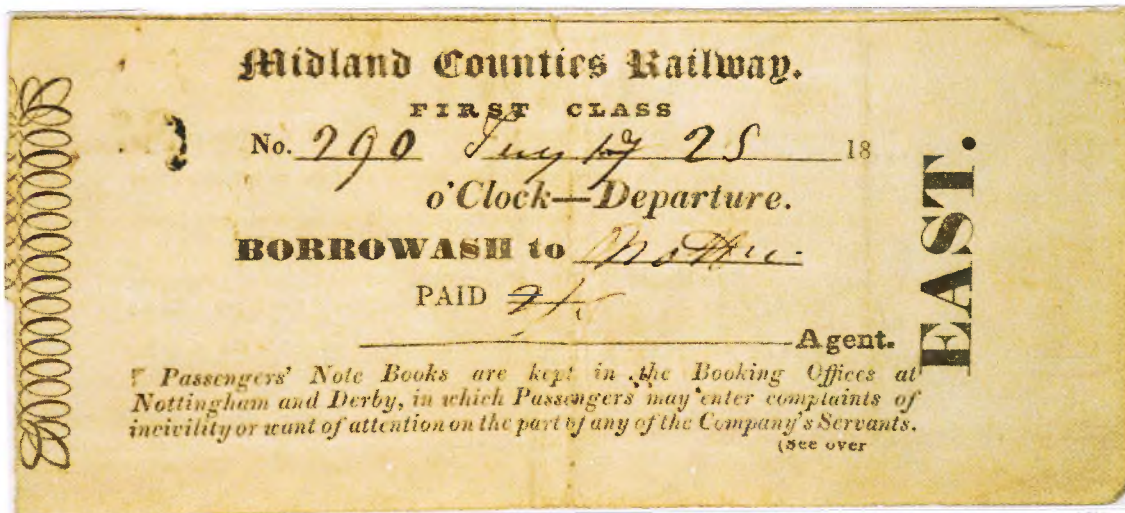 Midland Counties Railway.
FIRST CLASS
No. 290 25 18
o'Clock—Departure.
BORROWASH to
PAID
Agent.
Passengers' Note Books are kept in the Booking Offices at
Nottingham and Derby, in which Passengers may enter complaints of
incivility or want of attention on the part of any of the Company's Servants.
(See over
EAST.